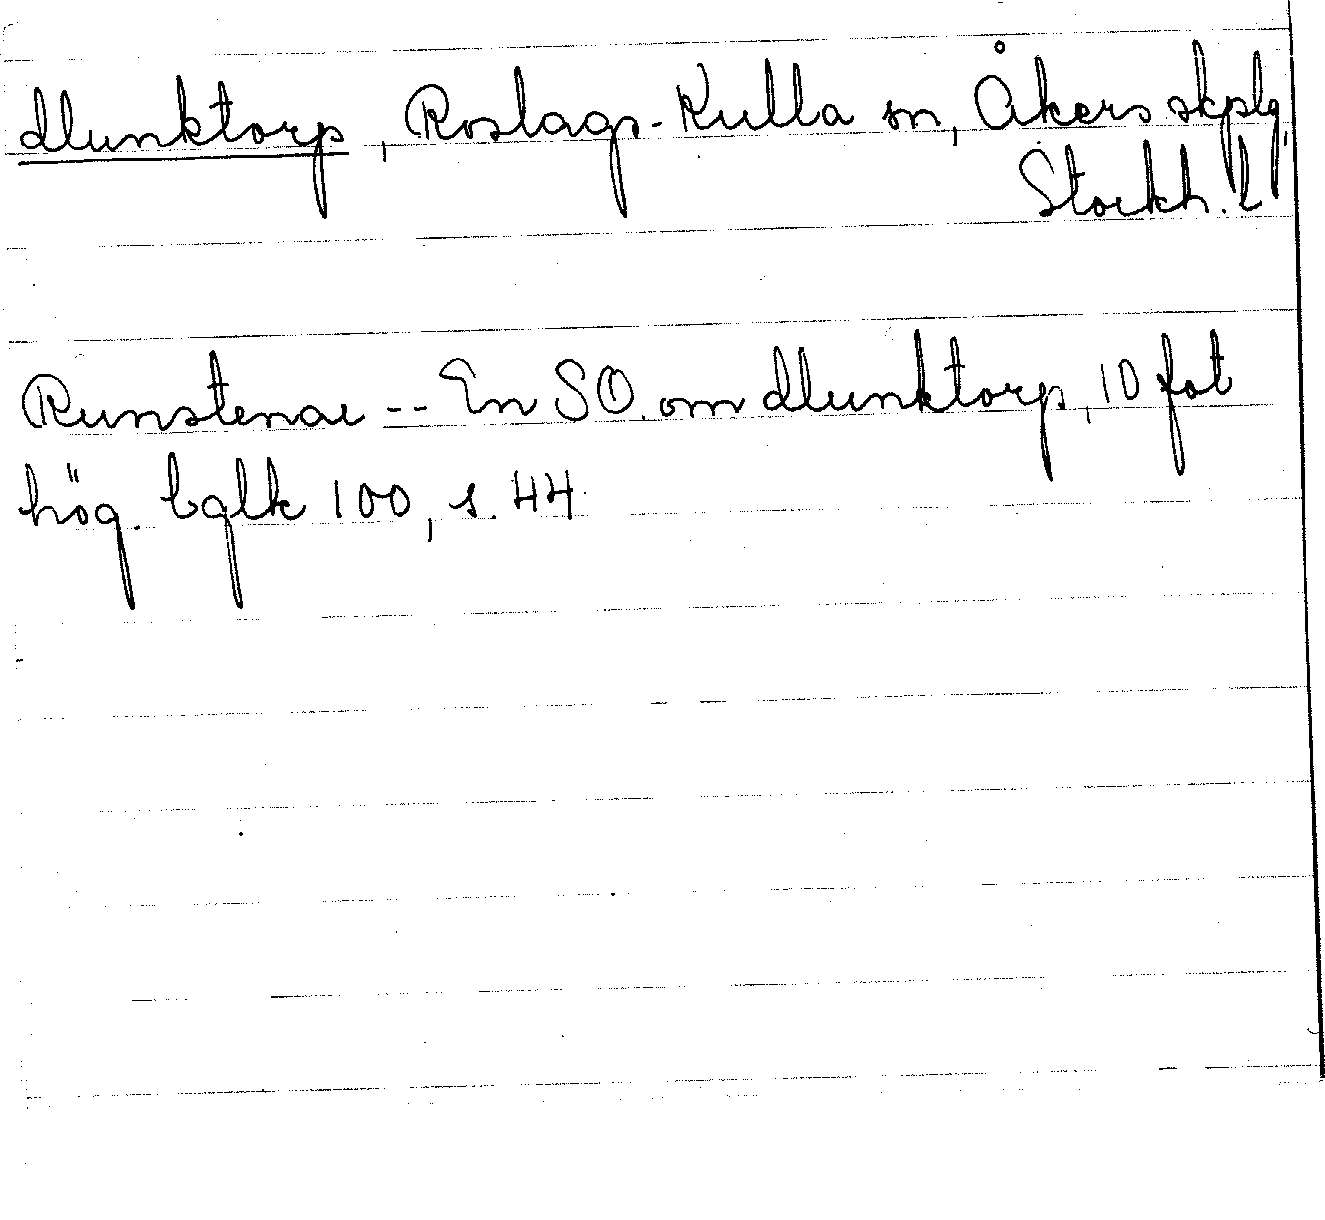 , Roslags-Kulla sn, Åkers skplg,
Stockh. l
Runstenar -- En SO. om , 10 fot
hög. bglk 100, s. 44